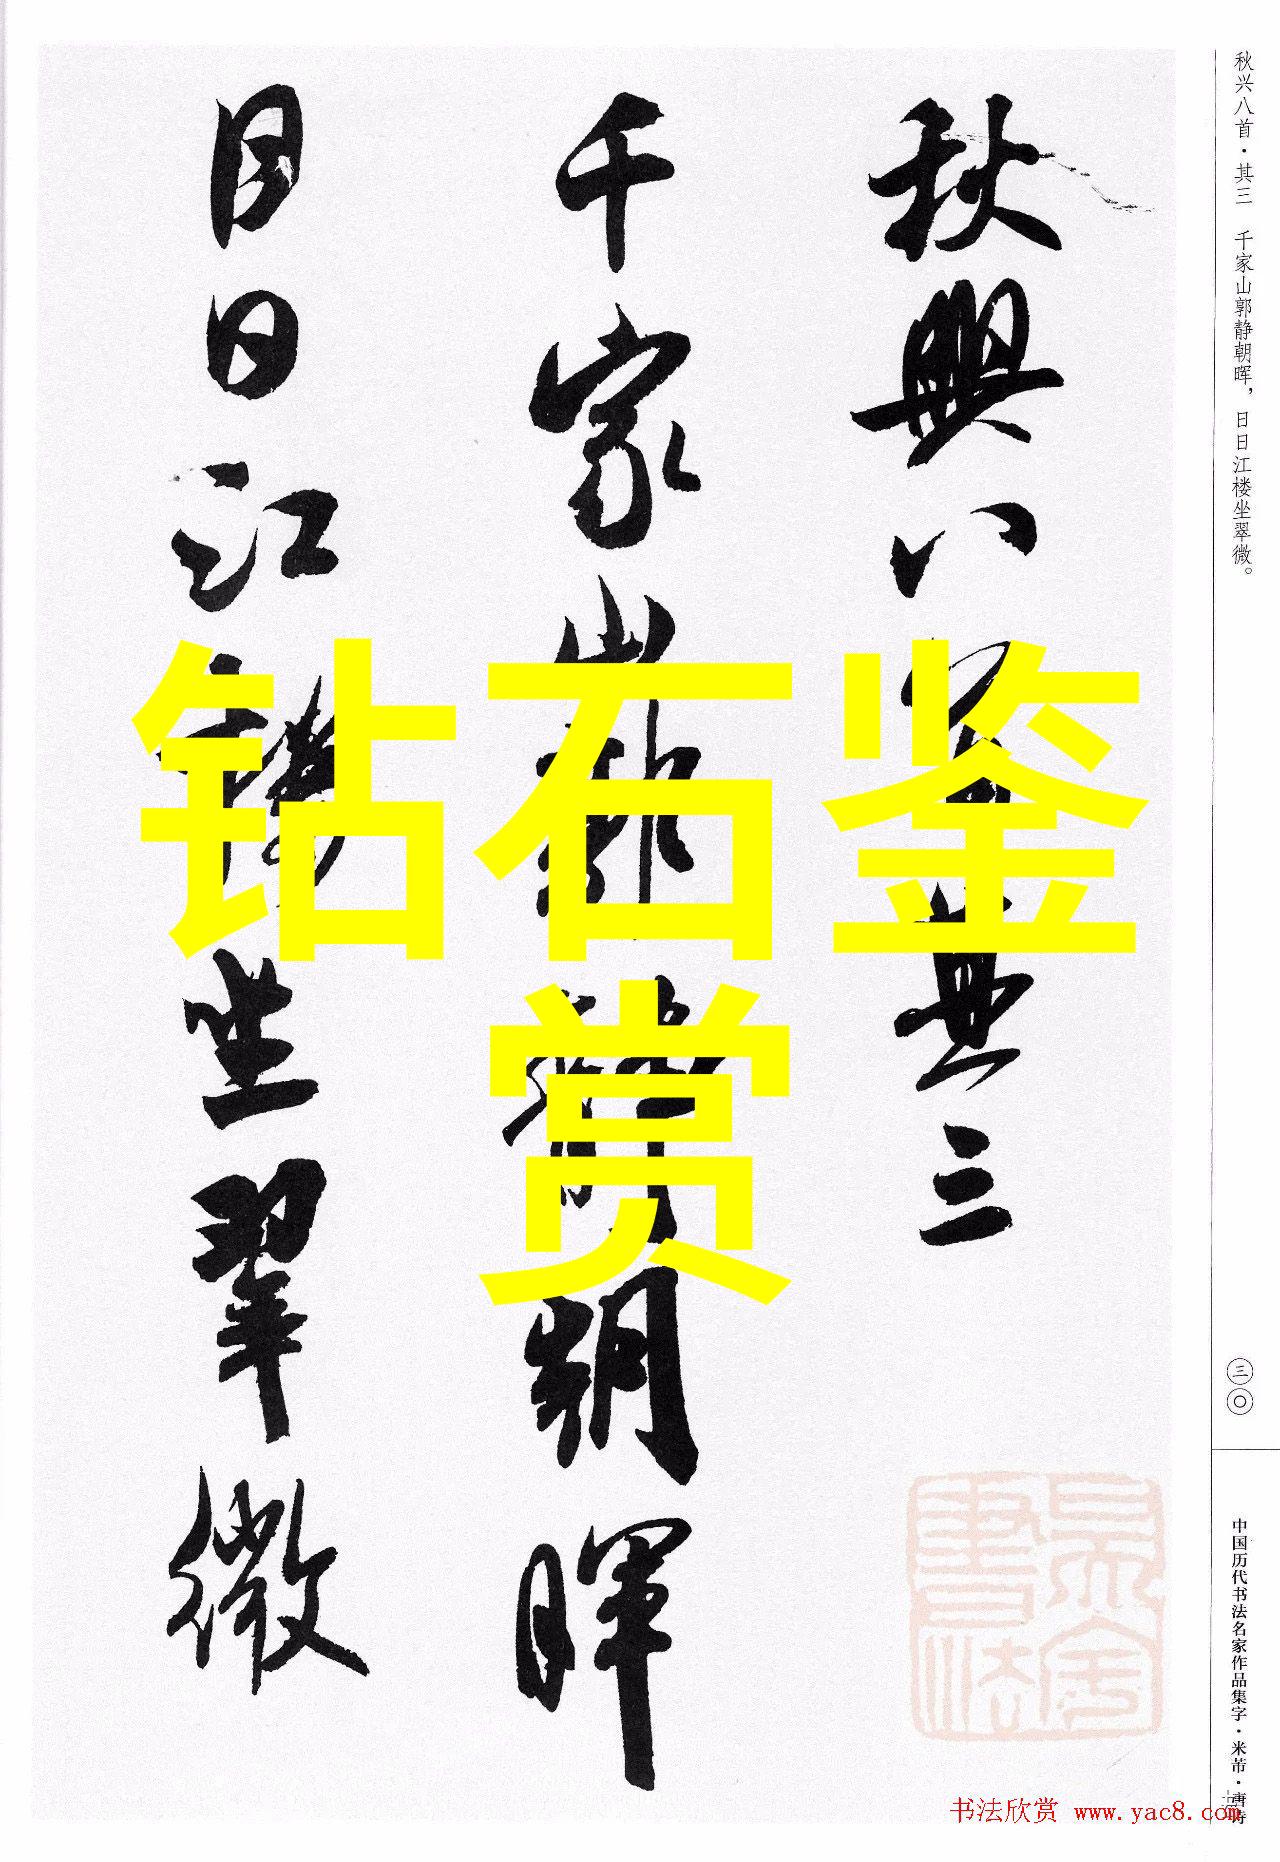 秋兴八首·其三 千家山郭静朝晖，日日江楼坐翠微。
三〇
中国历代书法名家作品集字·米芾·唐诗
秋興八首其三
千家山郭靜朝暉
日日江樓坐翠微
钻石鉴
赏
书法欣赏 www.yac8.com